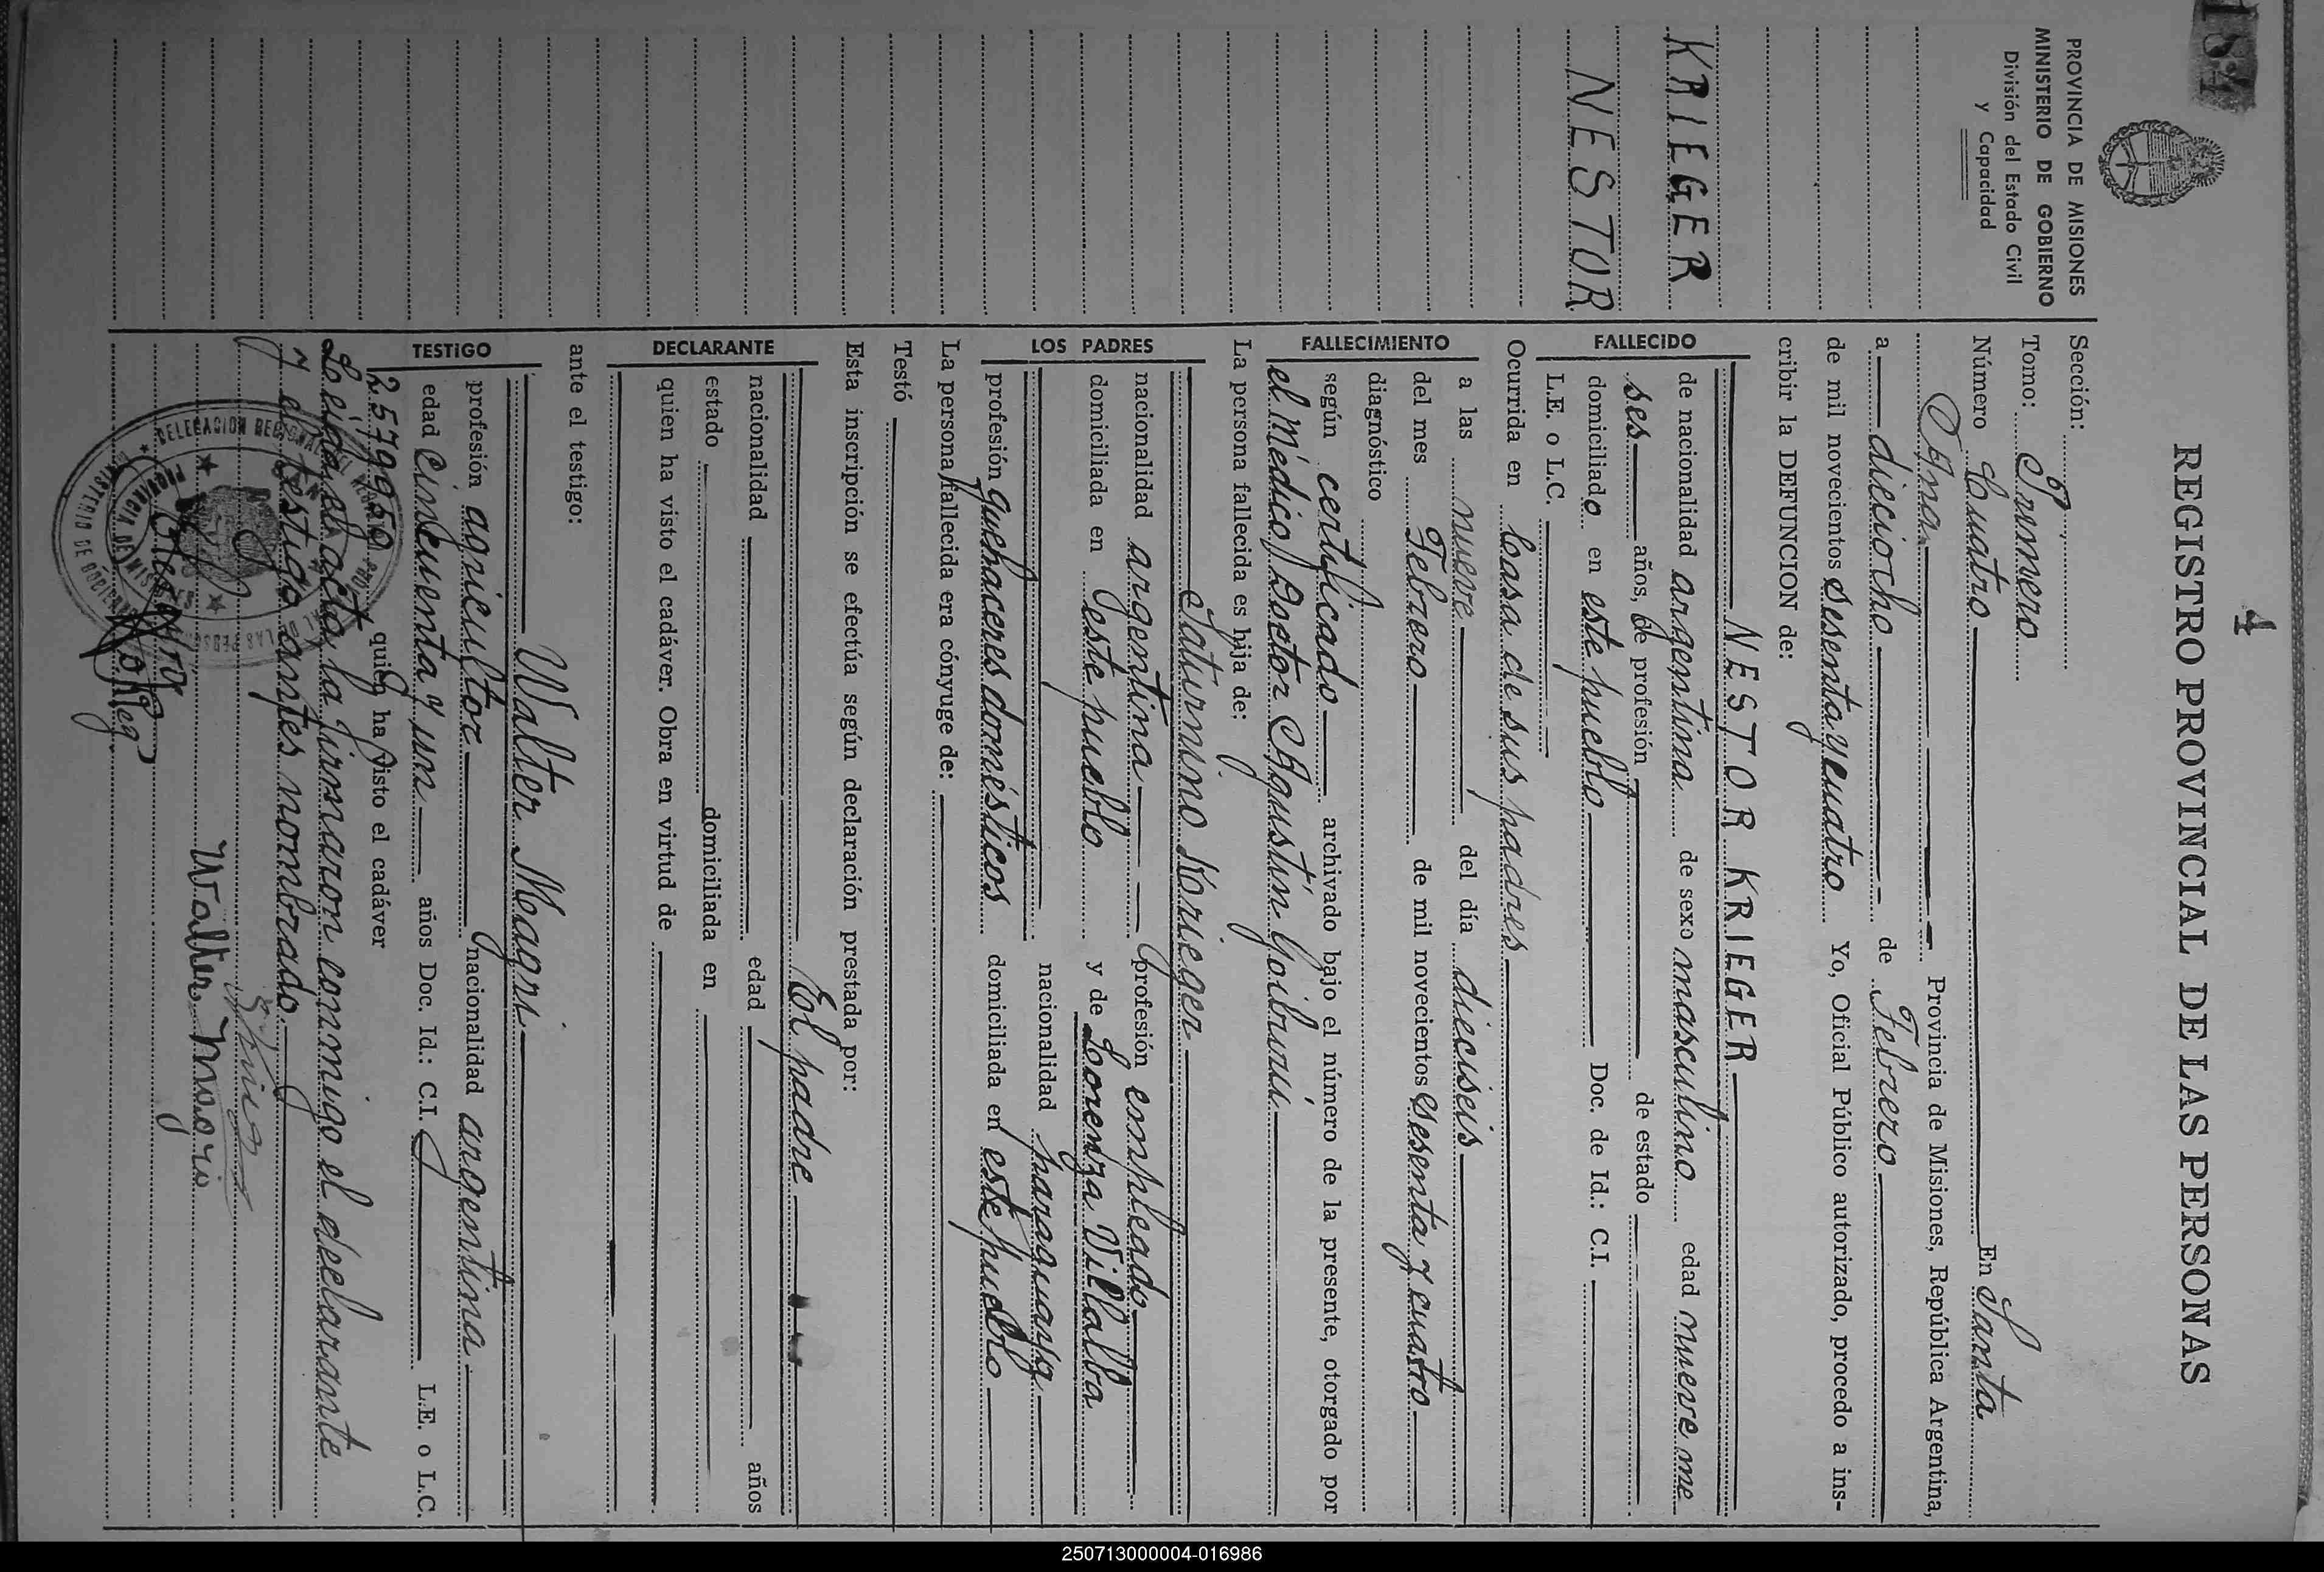 4
184
REGISTRO PROVINCIAL DE LAS PERSONAS
PROVINCIA DE MISIONES
MINISTERIO DE GOBIERNO
División del Estado Civil
Y Capacidad
KRIEGER
NESTOR
Sección:
Tomo: Primero
Número Cuatro En Santa
Ana. Provincia de Misiones, República Argentina,
a dieciocho de Febrero
de mil novecientos sesenta y cuatro Yo, Oficial Público autorizado, procedo a ins-
cribir la DEFUNCION de:
NESTOR KRIEGER
FALLECIDO
de nacionalidad argentina de sexo masculino edad nueve me
ses años, de profesión de estado
domiciliado en este pueblo Doc. de Id.: C.I.
L.E. o L.C.
Ocurrida en Casa de sus padres
FALLECIMIENTO
a las nueve del día dieciseis
del mes Febrero de mil novecientos sesenta y cuatro
diagnóstico
según certificado archivado bajo el número de la presente, otorgado por
el médico Doctor Agustín
La persona fallecida es hija de:
Saturnino Krieger
LOS PADRES
nacionalidad argentina profesión empleado
domiciliada en este pueblo y de Lorenza Villalba
nacionalidad paraguaya
profesión quehaceres domésticos domiciliada en este pueblo
La persona fallecida era cónyuge de:
Testó
Esta inscripción se efectúa según declaración prestada por:
El padre
DECLARANTE
nacionalidad edad años
estado domiciliada en
quien ha visto el cadáver. Obra en virtud de
ante el testigo:
Walter Magri
TESTIGO
profesión agricultor nacionalidad argentina
edad cincuenta y un años Doc. Id.: C.I. L.E. o L.C.
2.579.950 quien ha visto el cadáver
Leída el acta, la firmaron conmigo el declarante
y el testigo antes nombrado.
Walter Magri
DELEGACION
PROVINCIA DE MISIONES
MINISTERIO DE GOBIERNO
250713000004-016986